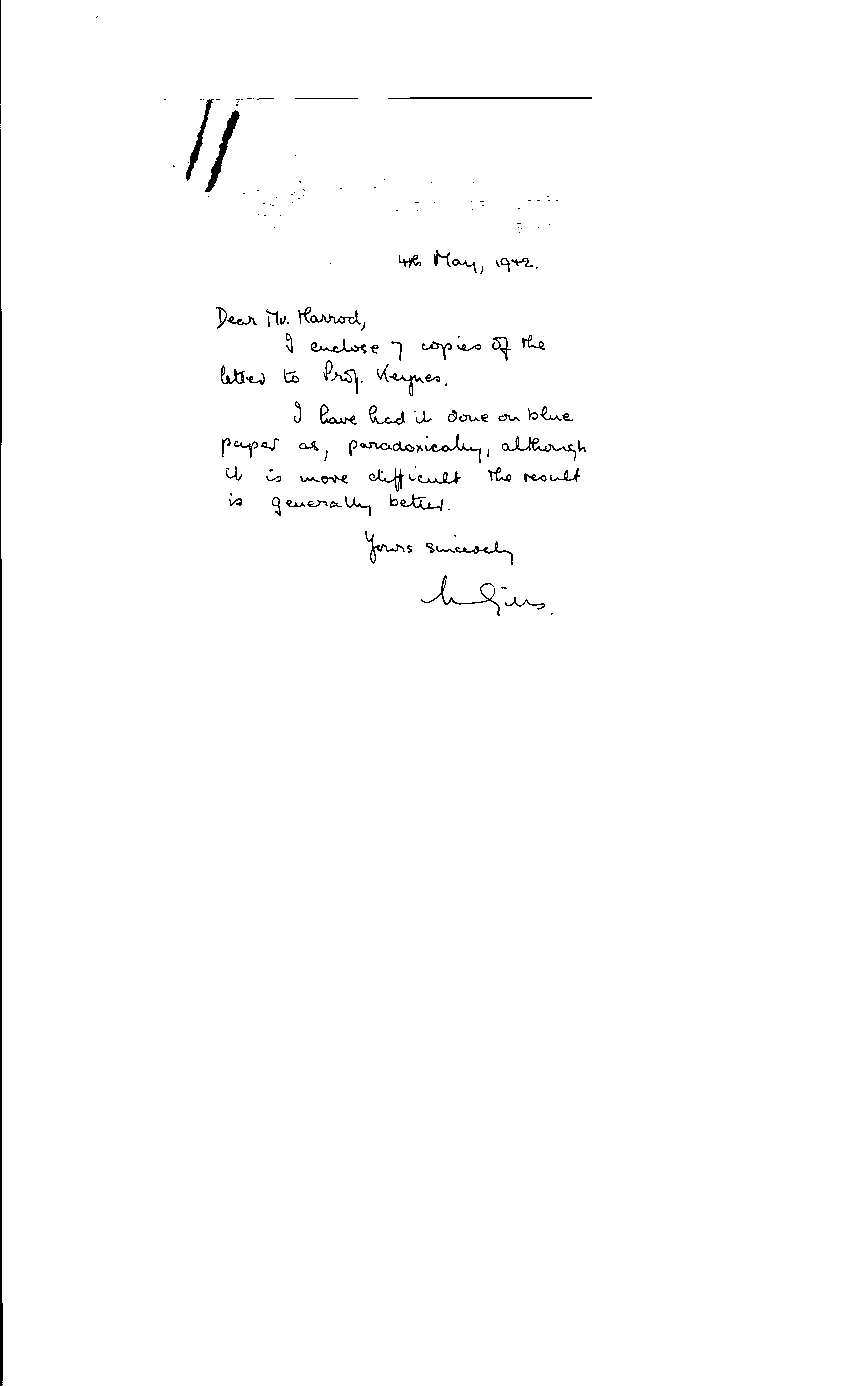 4th May, 1942.
Dear Mr. Harrod,
I enclose 7 copies of the
letter to Prof. Keynes.
I have had it done on blue
paper as, paradoxically, although
it is more difficult the result
is generally better.
Yours sincerely